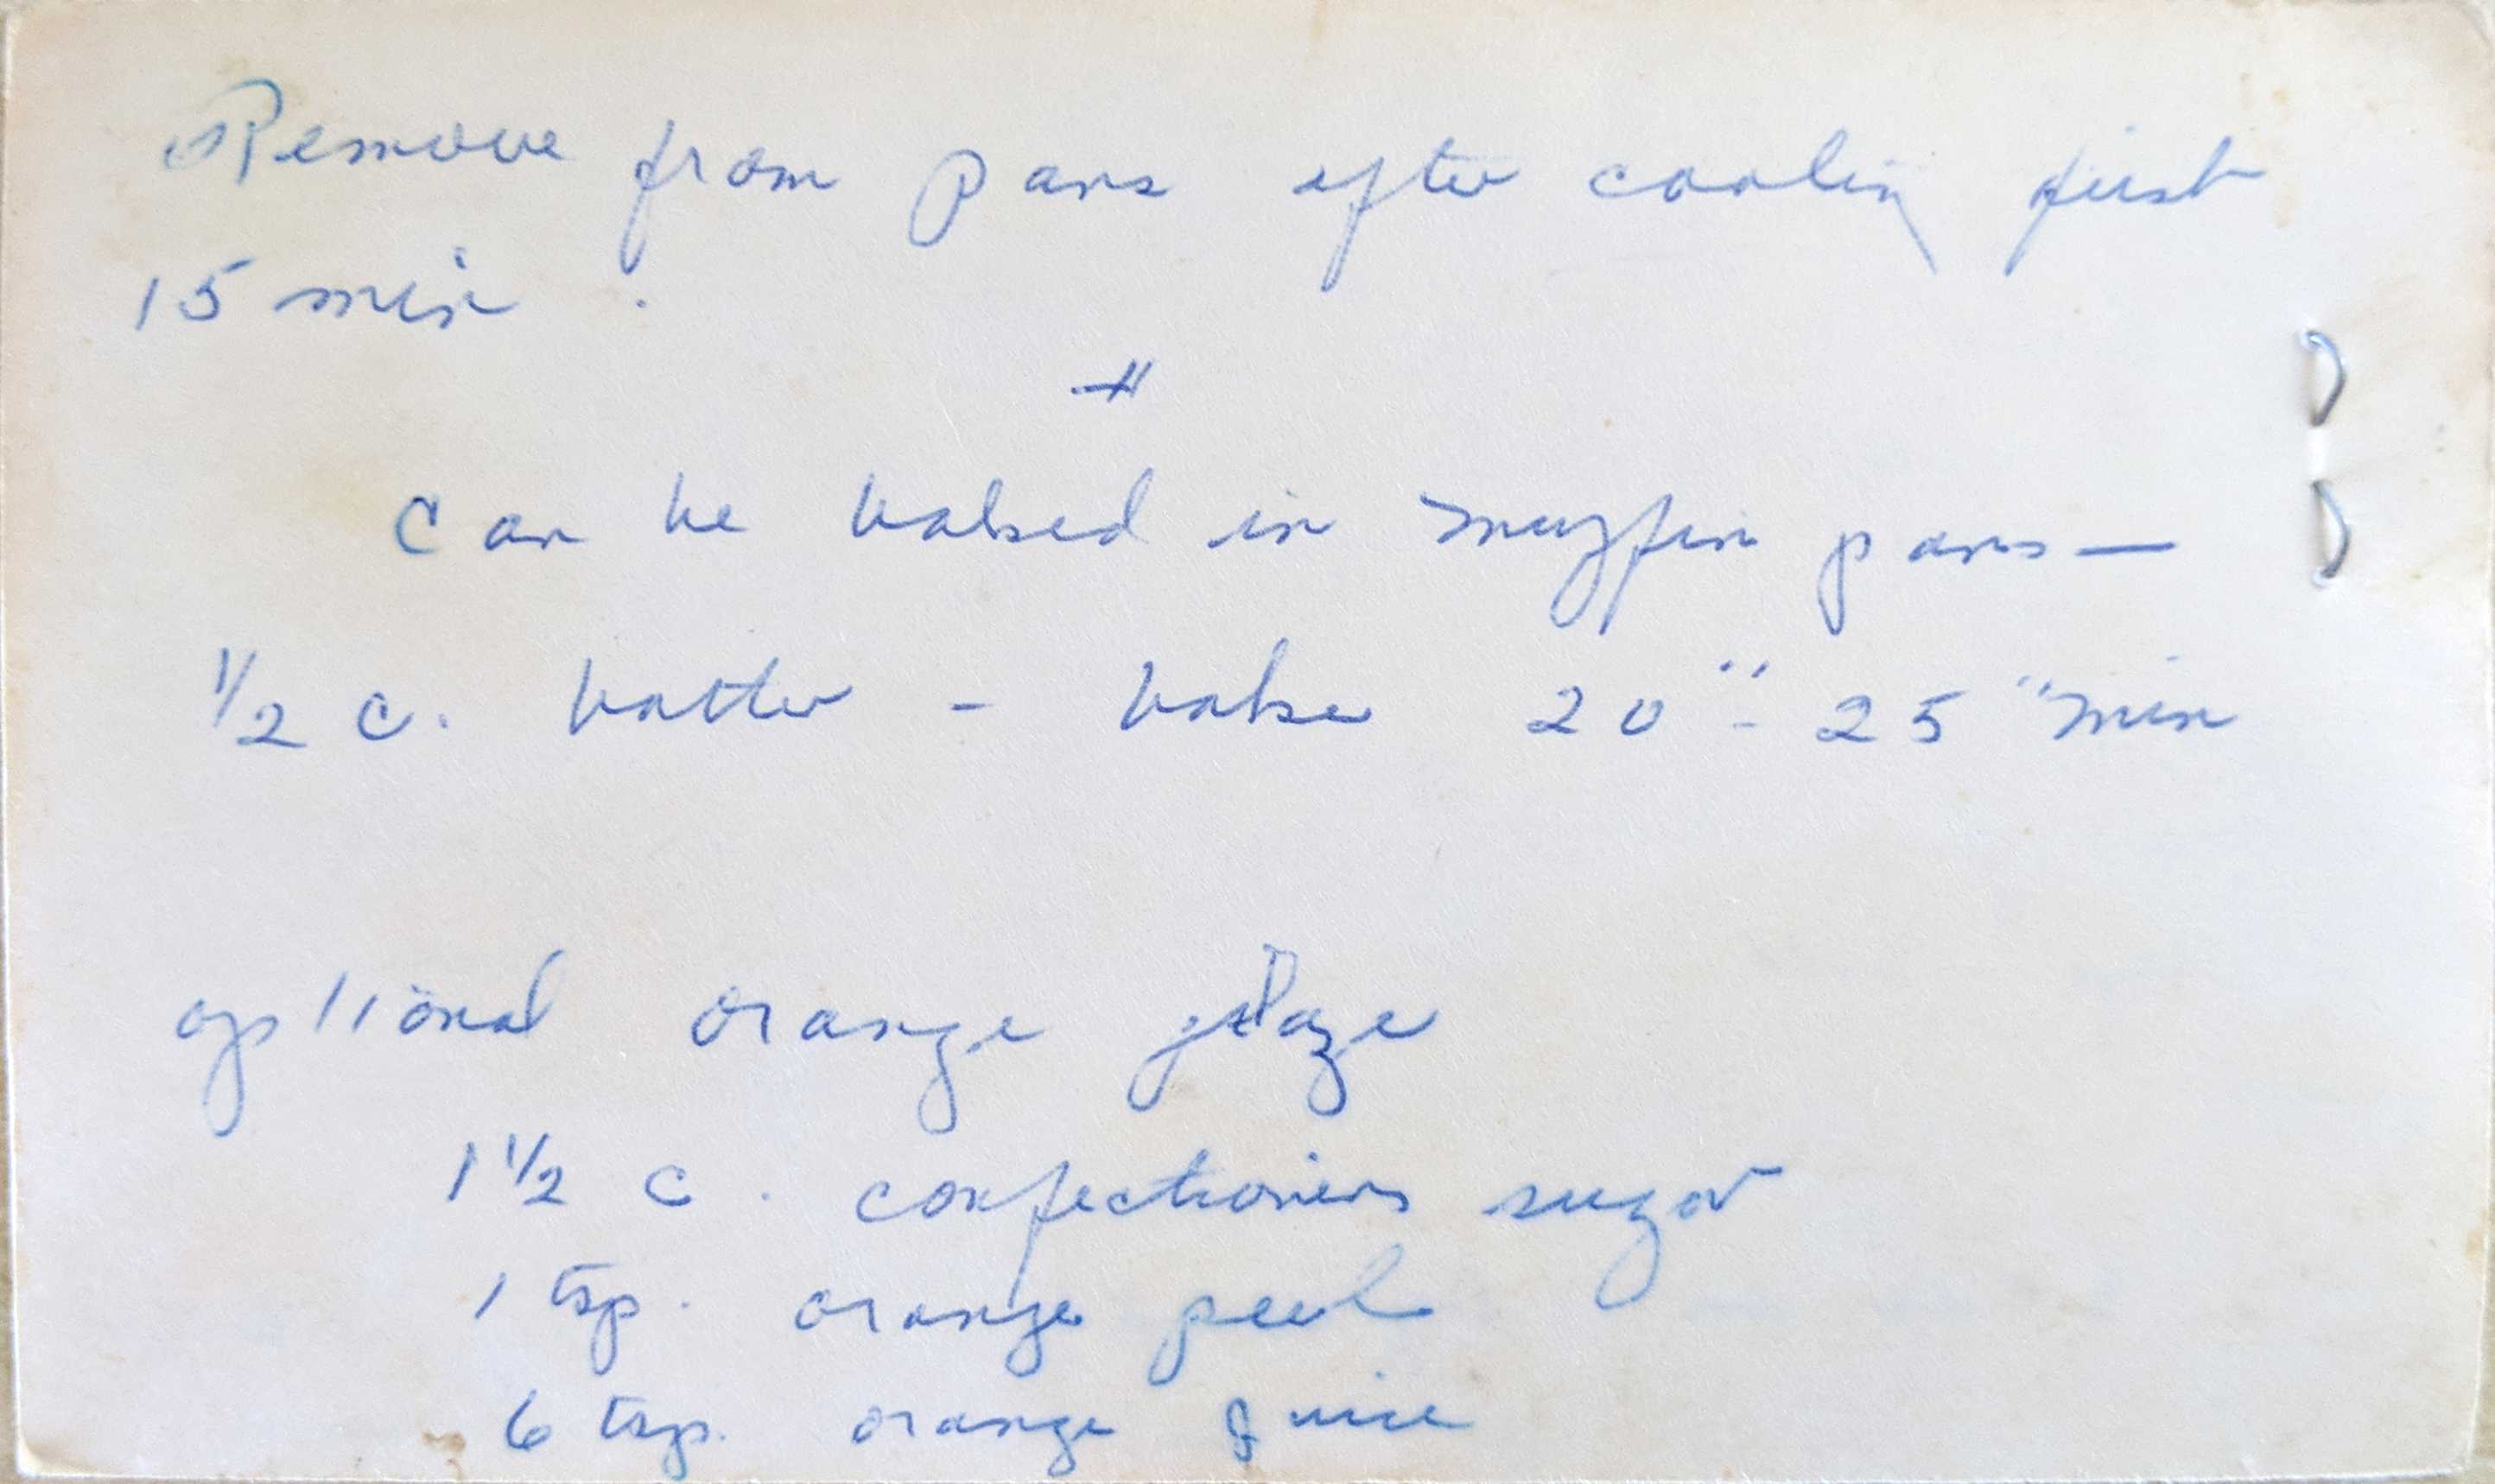 Remove from pans after cooling first
15 min.
#
Can be baked in muffin pans—
1/2 c. batter - bake 20" - 25" min
optional orange glaze
1 1/2 c. confectioners sugar
1 tsp. orange peel
6 tsp. orange juice